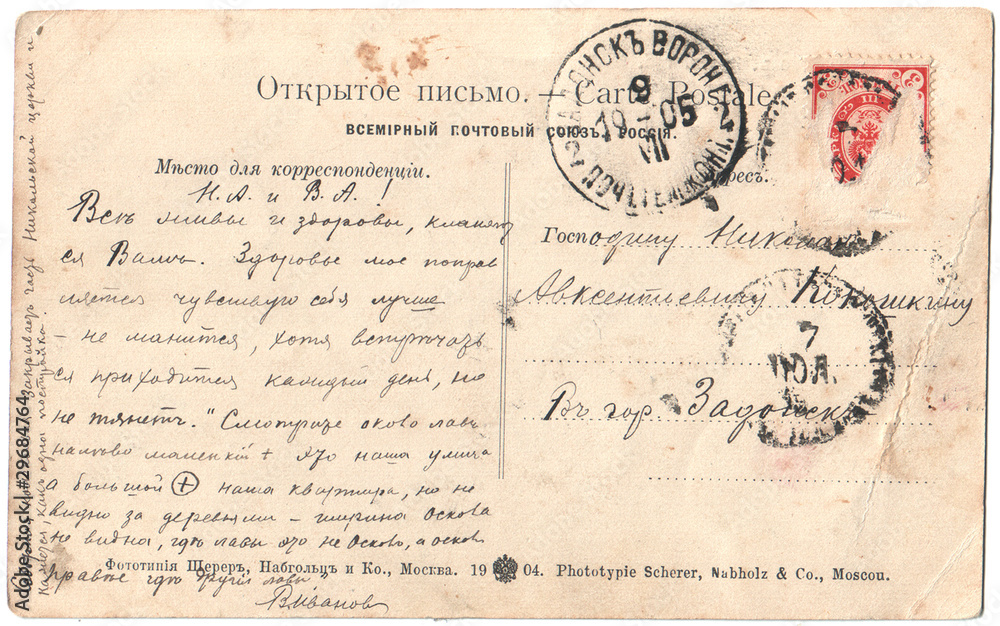 Открытое письмо. — Carte Postale.
ВСЕМІРНЫЙ ПОЧТОВЫЙ СОЮЗЪ. РОССІЯ.
Мѣсто для корреспонденціи.
Адресъ.
ЗАДОНСКЪ ВОРОН.
9
19 - 05
VII
7
ІЮЛ.
Н. А. и В. А. !
Всѣ живы и здоровы, кланяют
ся Вамъ. Здоровье мое поправ
ляется чувствую себя лучше
- не манится, хотя встрѣчать
ся приходится каждый день, но
не тянетъ. Смотрите около лавы
налѣво маленькій + это наша улица
а большой + наша квартира, но не
видно за деревьями - ширина Оскола
не видна, гдѣ лавы это не Осколъ, а Осколъ
правѣе гдѣ другія лавы
В Ивановъ
закрываетъ Никольской церкви и
кажется, какъ одна постройка.
Господину Николаю
Авксентіевичу Кокошкину
Въ гор. Задонскъ
Фототипія Шереръ, Набгольцъ и Ко., Москва. 19 04. Phototypie Scherer, Nabholz & Co., Moscou.
Adobe Stock | #29684764